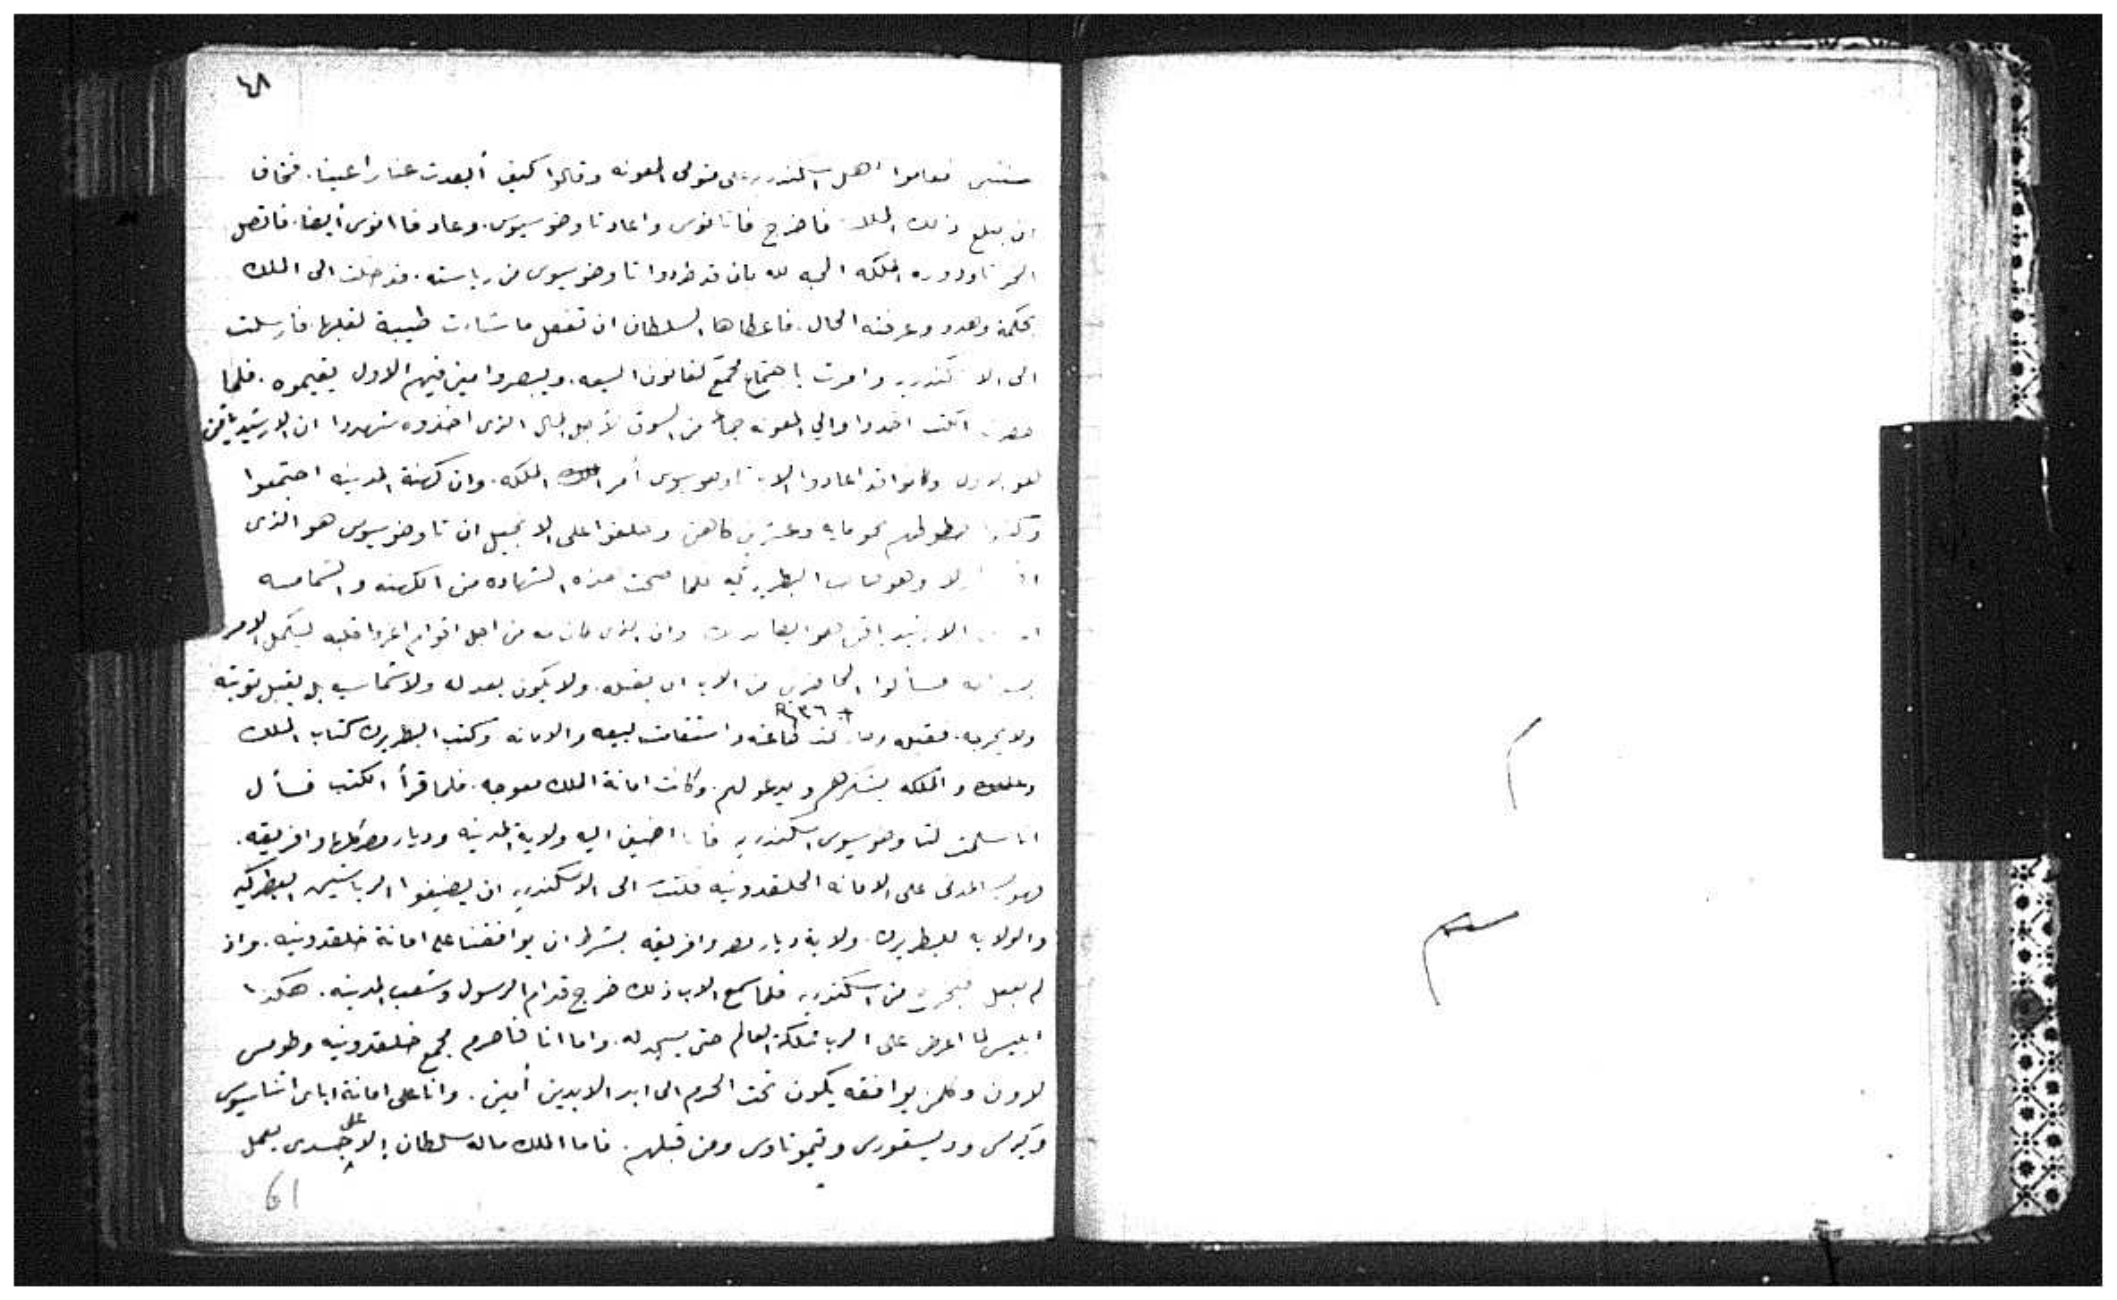 ٤٨
سنتين فقاموا اهل اسكندريه على متولى المعونه وقالوا كيف أبعدت عنا راعينا. فخاف
ان يبلغ ذلك الملك فاخرج قايانوس واعاد تاوضوسيوس. وعاد قايانوس أيضا. فاتصل
الخبر تاودوره الملكه المحبه لله بان قد طردوا تاوضوسيوس من رياسته. فدخلت الى الملك
بحكمة وهدو وعرفته الحال. فاعطاها السلطان ان تفعل ما شاءت طيبة لقلبها. فارسلت
الى الاسكندريه وامرت باجتماع مجمع لقانون البيعه. ويبصروا مين فيهم الاول يقيموه. فلما
اخدوا والي المعونه من السوق لأجل المال الذى اخذوه شهدوا ان الارشيدياقن
هو الاول وكانوا قد اعادوا الاب تاوضوسيوس أمر الملكه. وان كهنة المدينه اجتمعوا
وكتبوا خطوطهم نحو مايه وعشرين كاهن وحلفوا على الانجيل ان تاوضوسيوس هو الذى
اولا وهو البطريركيه فلما صحت هذه الشهاده من الكهنه والشمامسه
الارشيدياقن هو ايضا وان الذى كان منه من اجل اقوام اغروا قلبه ليكمل الامر
فسألوا الحاضرين من الاب ان يقبله. ولا يكون بعد له ولا شماسيه بل يقبل توبته
ولا يحرمه. فقبله وصار تحت طاعته واستقامت البيعه والامانه وكتب البطريرك كتاب الملك
+ ٣٦
والملكه يشكرهم ويدعو لهم. وكانت امانة الملك معوجه. فلما قرأ الكتب فسأل
انا سلمت لتاوضوسيوس اسكندريه فانا اضيف اليه ولاية المدينه وديار مصر كلها وافريقه.
على الامانه الخلقدونيه فكتب الى الاسكندريه ان يضيفوا الرياستين البطركيه
والولايه للبطريرك. ولاية ديار مصر وافريقه بشرط ان يوافقنا على امانة خلقدونيه. واذ
لم يفعل فيخرج من اسكندريه فلما سمع الاب ذلك خرج قدام الرسول وشعب المدينه. هكذا
ابليس لما اعرض على الرب مملكة العالم حتى يسجد له. واما انا فاحرم مجمع خلقدونيه وطومس
لاون وكلمن يوافقه يكون تحت الحرم الى ابد الابدين أمين. وانا على امانة اباى اتناسيوس
وكيرلس وديسقورس وتيموتاوس ومن قبلهم. فاما الملك ماله سلطان إلا على جسدى يعمل
61